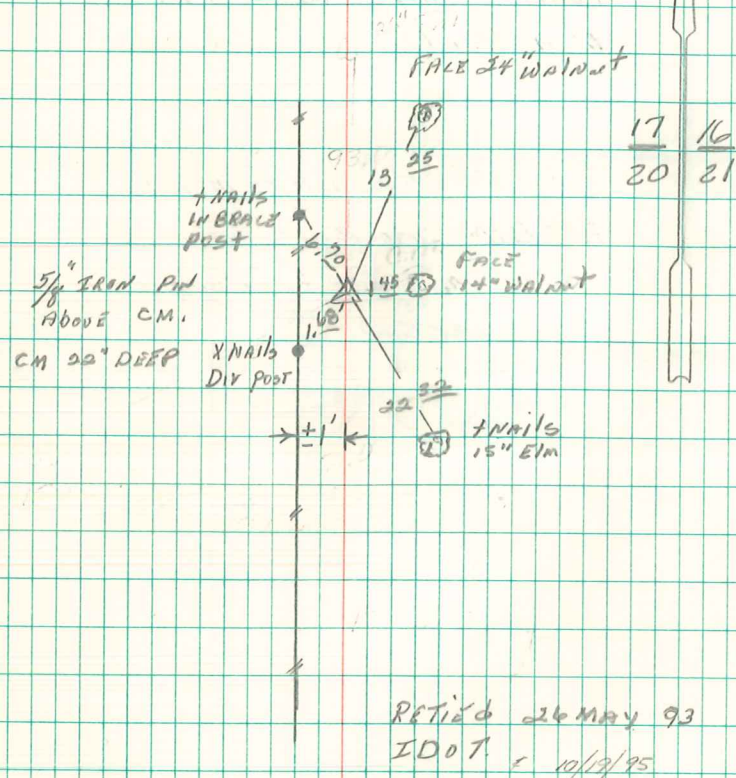 FACE 24" WALNUT
17 16
20 21
13 25
+ NAILS
IN BRACE
POST
6.70
5/8" IRON PIN
ABOVE CM.
CM 22" DEEP
FACE
14" WALNUT
1 45
1.68
X NAILS
DIV POST
22 32
± 1'
+ NAILS
15" ELM
RETIED 26 MAY 93
IDOT.
10/19/95